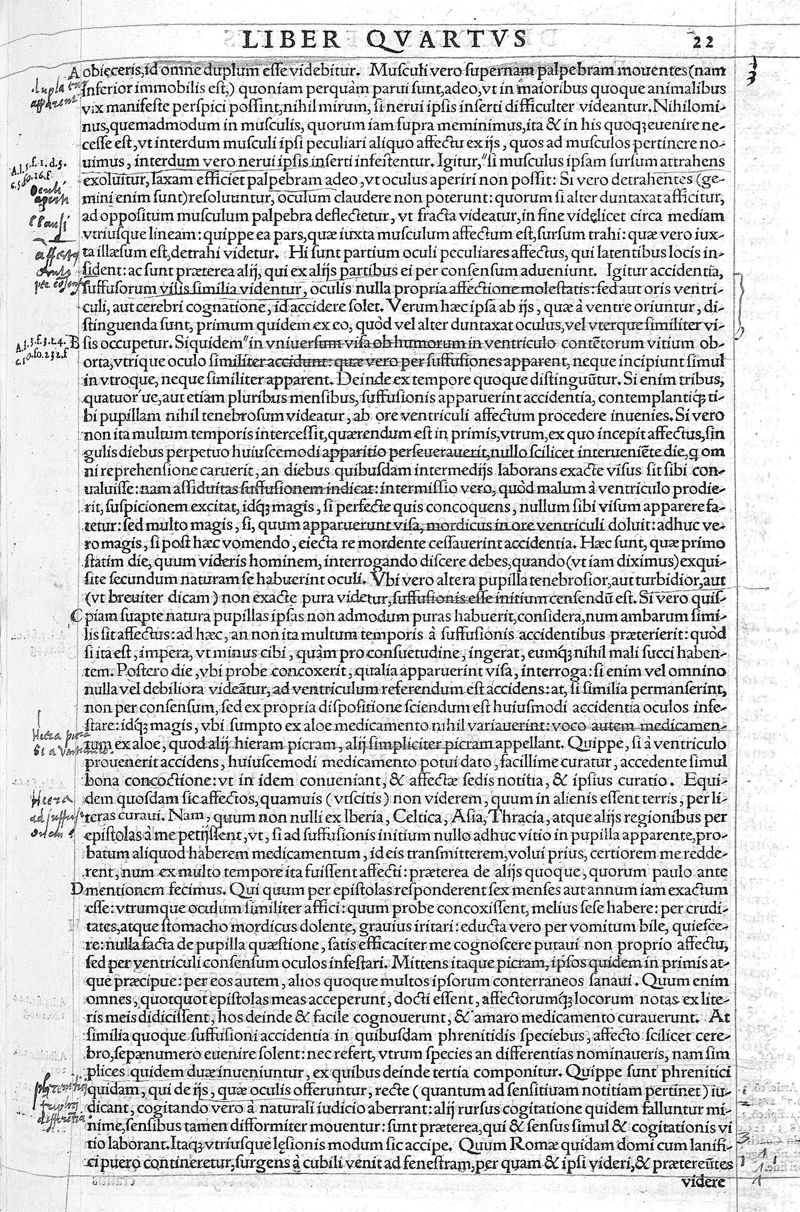 LIBER QVARTVS 22
A obieceris, id omne duplum esse videbitur. Musculi vero supernam palpebram mouentes (nam
inferior immobilis est,) quoniam perquàm parui sunt, adeo, vt in maioribus quoque animalibus
vix manifeste perspici possint, nihil mirum, si nerui ipsis inserti difficulter videantur. Nihilomi-
nus, quemadmodum in musculis, quorum iam supra meminimus, ita & in his quoq; euenire ne-
cesse est, vt interdum musculi ipsi peculiari aliquo affectu ex ijs, quos ad musculos pertinere no-
uimus, interdum vero nerui ipsis inserti infestentur. Igitur, si musculus ipsam sursum attrahens
exoluitur, laxam efficiet palpebram adeo, vt oculus aperiri non possit: Si vero detrahentes (ge-
mini enim sunt) resoluuntur, oculum claudere non poterunt: quorum si alter duntaxat afficitur,
ad oppositum musculum palpebra deflectetur, vt fracta videatur, in fine videlicet circa mediam
vtriusque lineam: quippe ea pars, quæ iuxta musculum affectum est, sursum trahi: quæ vero iux-
ta illæsum est, detrahi videtur. Hi sunt partium oculi peculiares affectus, qui latentibus locis in-
sident: ac sunt præterea alij, qui ex alijs partibus ei per consensum adueniunt. Igitur accidentia,
suffusorum visis similia videntur, oculis nulla propria affectione molestatis: sed aut oris ventri-
culi, aut cerebri cognatione, id accidere solet. Verum hæc ipsa ab ijs, quæ à ventre oriuntur, di-
stinguenda sunt, primum quidem ex eo, quòd vel alter duntaxat oculus, vel vterque similiter vi-
B sis occupetur. Siquidem in vniuersum visa ob humorum in ventriculo contẽtorum vitium ob-
orta, vtrique oculo similiter accidunt: quæ vero per suffusiones apparent, neque incipiunt simul
in vtroque, neque similiter apparent. Deinde ex tempore quoque distinguũtur. Si enim tribus,
quatuor ue, aut etiam pluribus mensibus, suffusionis apparuerint accidentia, contemplantiq; ti-
bi pupillam nihil tenebrosum videatur, ab ore ventriculi affectum procedere inuenies. Si vero
non ita multum temporis intercessit, quærendum est in primis, vtrum, ex quo incepit affectus, sin
gulis diebus perpetuo huiuscemodi apparitio perseuerauerit, nullo scilicet interueniẽte die, q om
ni reprehensione caruerit, an diebus quibusdam intermedijs laborans exacte visus sit sibi con-
ualuisse: nam assiduitas suffusionem indicat: intermissio vero, quòd malum à ventriculo prodie-
rit, suspicionem excitat, idq; magis, si perfecte quis concoquens, nullum sibi visum apparere fa-
tetur: sed multo magis, si, quum apparuerunt visa, mordicus in ore ventriculi doluit: adhuc ve-
ro magis, si post hæc vomendo, eiecta re mordente cessauerint accidentia. Hæc sunt, quæ primo
statim die, quum videris hominem, interrogando discere debes, quando (vt iam diximus) exqui-
site secundum naturam se habuerint oculi. Vbi vero altera pupilla tenebrosior, aut turbidior, aut
(vt breuiter dicam) non exacte pura videtur, suffusionis esse initium censendũ est. Si vero quis-
C piam suapte natura pupillas ipsas non admodum puras habuerit, considera, num ambarum simi-
lis sit affectus: ad hæc, an non ita multum temporis à suffusionis accidentibus præterierit: quòd
si ita est, impera, vt minus cibi, quàm pro consuetudine, ingerat, eumq; nihil mali succi haben-
tem. Postero die, vbi probe concoxerit, qualia apparuerint visa, interroga: si enim vel omnino
nulla vel debiliora videãtur, ad ventriculum referendum est accidens: at, si similia permanserint,
non per consensum, sed ex propria dispositione sciendum est huiusmodi accidentia oculos infe-
stare: idq; magis, vbi sumpto ex aloe medicamento nihil variauerint: voco autem medicamen-
tum ex aloe, quod alij hieram picram, alij simpliciter picram appellant. Quippe, si à ventriculo
prouenerit accidens, huiuscemodi medicamento potui dato, facillime curatur, accedente simul
bona concoctione: vt in idem conueniant, & affectæ sedis notitia, & ipsius curatio. Equi-
dem quosdam sic affectos, quamuis (vt scitis) non viderem, quum in alienis essent terris, per li-
teras curaui. Nam, quum non nulli ex Iberia, Celtica, Asia, Thracia, atque alijs regionibus per
epistolas à me petijssent, vt, si ad suffusionis initium nullo adhuc vitio in pupilla apparente, pro-
batum aliquod haberem medicamentum, id eis transmitterem, volui prius, certiorem me redde-
rent, num ex multo tempore ita fuissent affecti: præterea de alijs quoque, quorum paulo ante
D mentionem fecimus. Qui quum per epistolas responderent sex menses aut annum iam exactum
esse: vtrumque oculum similiter affici: quum probe concoxissent, melius sese habere: per crudi-
tates, atque stomacho mordicus dolente, grauius irritari: educta vero per vomitum bile, quiesce-
re: nulla facta de pupilla quæstione, satis efficaciter me cognoscere putaui non proprio affectu,
sed per ventriculi consensum oculos infestari. Mittens itaque picram, ipsos quidem in primis at-
que præcipue: per eos autem, alios quoque multos ipsorum conterraneos sanaui. Quum enim
omnes, quotquot epistolas meas acceperunt, docti essent, affectorumq; locorum notas ex lite-
ris meis didicissent, hos deinde & facile cognouerunt, & amaro medicamento curauerunt. At
similia quoque suffusioni accidentia in quibusdam phrenitidis speciebus, affecto scilicet cere-
bro, sepænumero euenire solent: nec refert, vtrum species an differentias nominaueris, nam sim
plices quidem duæ inueniuntur, ex quibus deinde tertia componitur. Quippe sunt phrenitici
quidam, qui de ijs, quæ oculis offeruntur, recte (quantum ad sensitiuam notitiam pertinet) iu-
dicant, cogitando vero à naturali iudicio aberrant: alij rursus cogitatione quidem falluntur mi-
nime, sensibus tamen difformiter mouentur: sunt præterea, qui & sensus simul & cogitationis vi
tio laborant. Itaq; vtriusque lęsionis modum sic accipe. Quum Romæ quidam domi cum lanifi-
ci puero contineretur, surgens à cubili venit ad fenestram, per quam & ipsi videri, & prætereũtes
videre